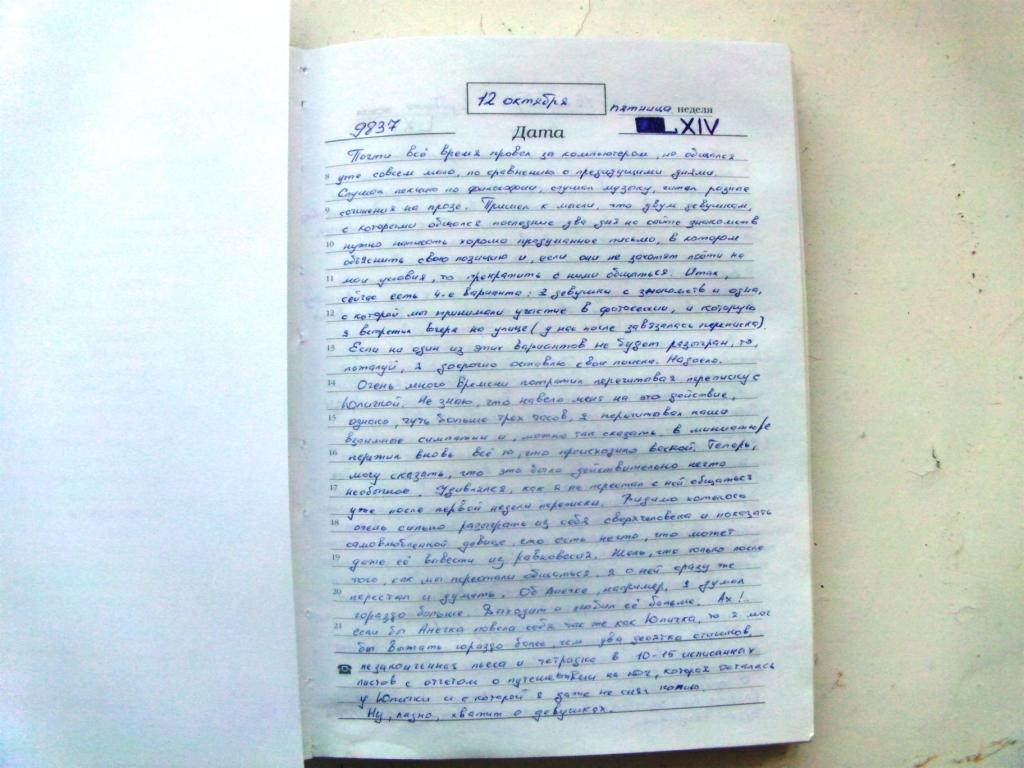 12 октября
пятница неделя
9837
Дата
LXIV
Почти всё время провел за компьютером, но общался
8 уже совсем мало, по сравнению с предидущими днями.
Слушал лекцию по философии, слушал музыку, читал разные
9 сочинения на прозе. Пришел к мысли, что двум девушкам,
с которыми общался последние два дня на сайте знакомств
10 нужно написать хорошо продуманное письмо, в котором
объяснить свою позицию и, если они не захотят пойти на
11 мои условия, то прекратить с ними общаться. Итак,
сейчас есть 4-е варианта: 2 девушки с знакомств и одна,
12 с которой мы принимали участие в фотосессии, и которую
я встретил вчера на улице (у нас после завязалась переписка).
13 Если ни один из этих вариантов не будет разыгран, то,
пожалуй, я досрочно оставлю свои поиски. Надоело.
14 Очень много времени потратил перечитывая переписку с
Юличкой. Не знаю, что навело меня на это действие,
15 однако, чуть больше трех часов, я перечитывал наши
взаимные симпатии и, можно так сказать, в миниатюре
16 пережил вновь всё то, что происходило весной. Теперь,
могу сказать, что это было действительно нечто
17 необычное. Удивлялся, как я не перестал с ней общаться
уже после первой недели переписки. Видимо хотелось
18 очень сильно разыграть из себя сверхчеловека и показать
самовлюбленной девице, что есть нечто, что может
19 даже её вывести из равновесия. Жаль, что только после
того, как мы перестали общаться, я о ней сразу же
20 перестал и думать. Об Анечке, например, я думал
гораздо больше. Выходит и любил её больше. Ах!..
21 если бы Анечка повела себя так же как Юличка, то я мог
бы выжать гораздо более, чем два десятка стишков,
незаконченная пьеса и тетрадка в 10-15 исписанных
листов с отчетом о путешествии на юг, которая осталась
у Юлички и с которой я даже не снял копию.
Ну, ладно, хватит о девушках.